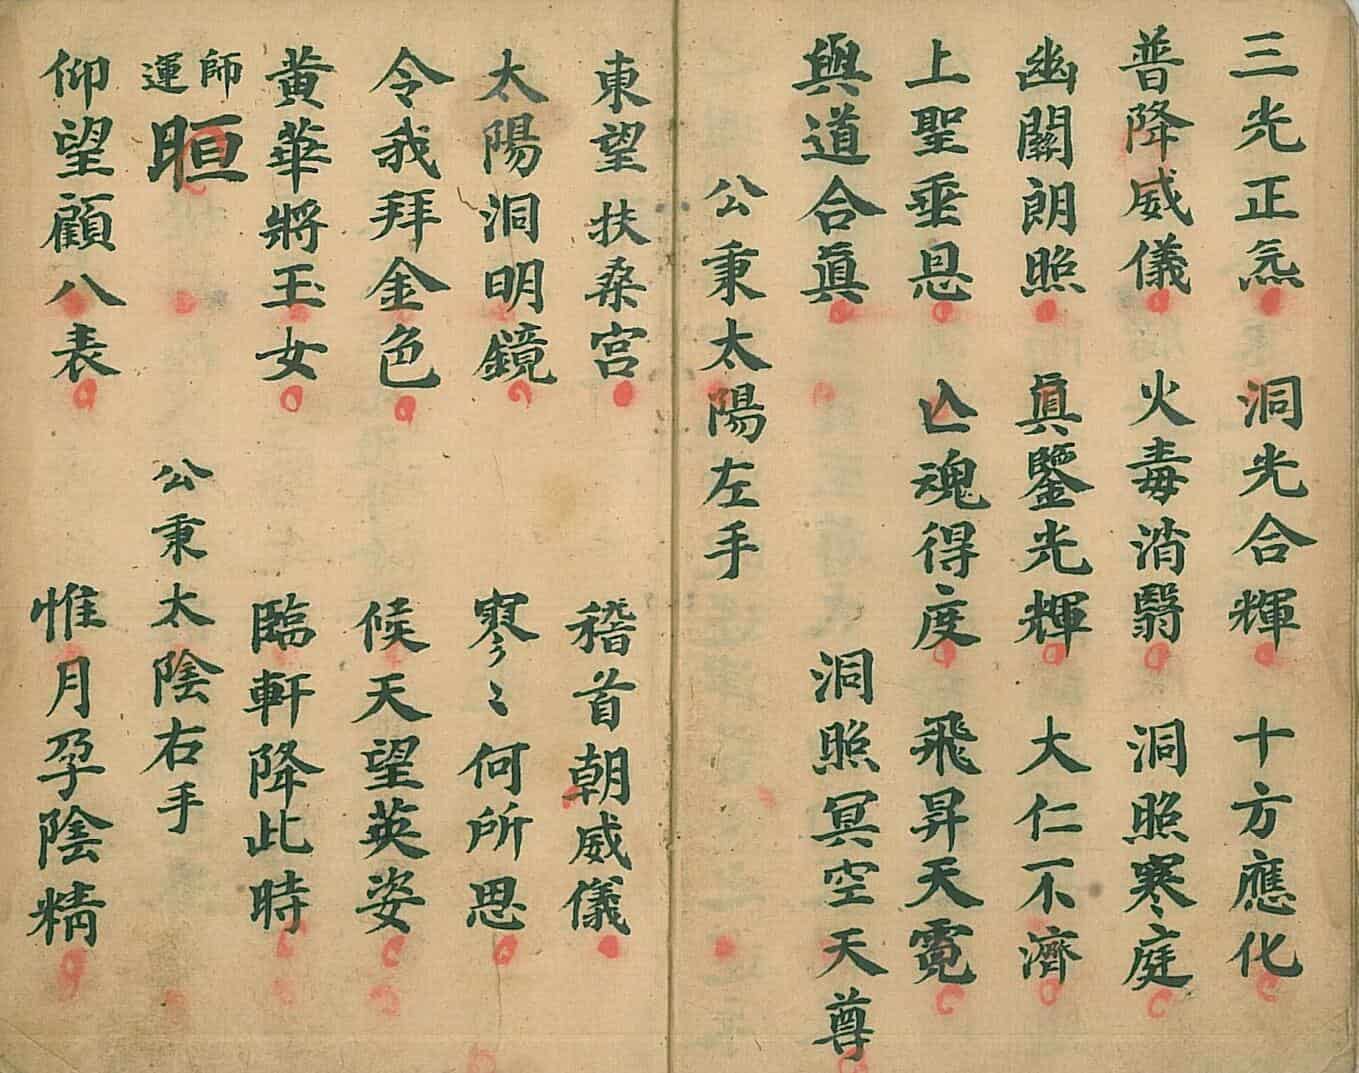 三光正炁 洞光合輝 十方應化
普降威儀 火毒消翳 洞照寒庭
幽關朗照 眞鑒光輝 大仁不濟
上聖垂恩 亾魂得度 飛昇天霓
與道合眞 洞照冥空天尊
公秉太陽左手
東望扶桑宮 稽首朝威儀
太陽洞明鏡 寥〻何所思
令我拜金色 候天望英姿
黃華將玉女 臨軒降此時
師運晅 公秉太陰右手
仰望顧八表 惟月孕陰精